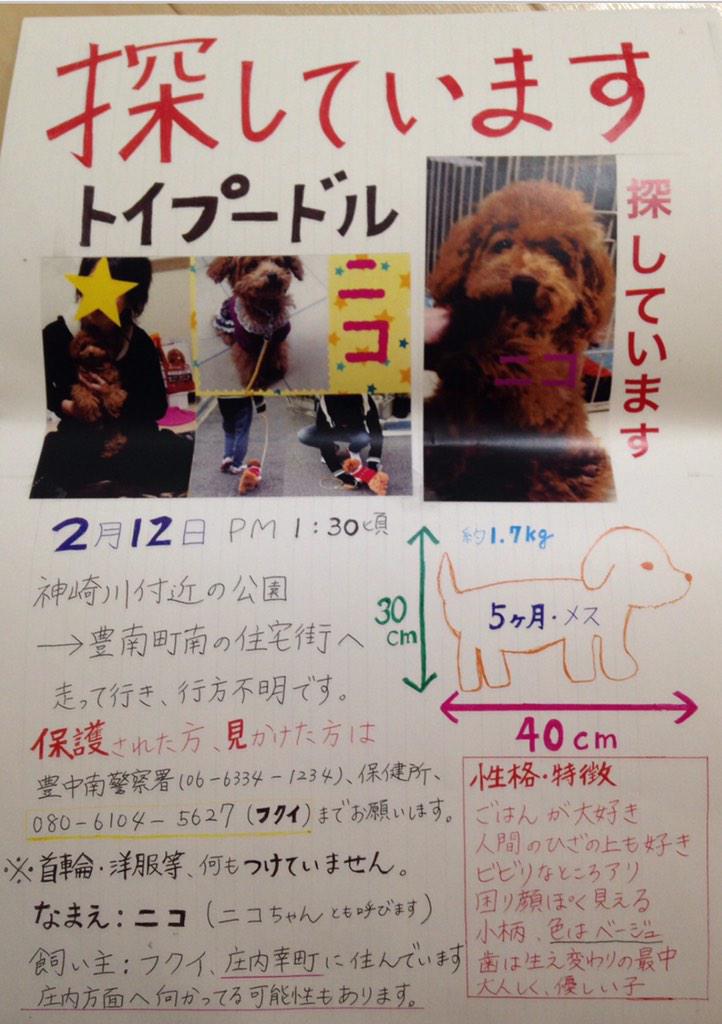 探しています
トイプードル
ニコ
ニコ
探しています
2月12日 PM 1:30頃
神崎川付近の公園
→豊南町南の住宅街へ
走って行き、行方不明です。
約1.7kg
30cm
5ヶ月・メス
40cm
保護された方、見かけた方は
豊中南警察署(06-6334-1234)、保健所、
080-6104-5627(フクイ)までお願いします。
※首輪・洋服等、何もつけていません。
なまえ:ニコ(ニコちゃんとも呼びます)
飼い主:フクイ、庄内幸町に住んでいます
庄内方面へ向かってる可能性もあります。
性格・特徴
ごはんが大好き
人間のひざの上も好き
ビビりなところアリ
困り顔ぽく見える
小柄、色はベージュ
歯は生え変わりの最中
大人しく、優しい子